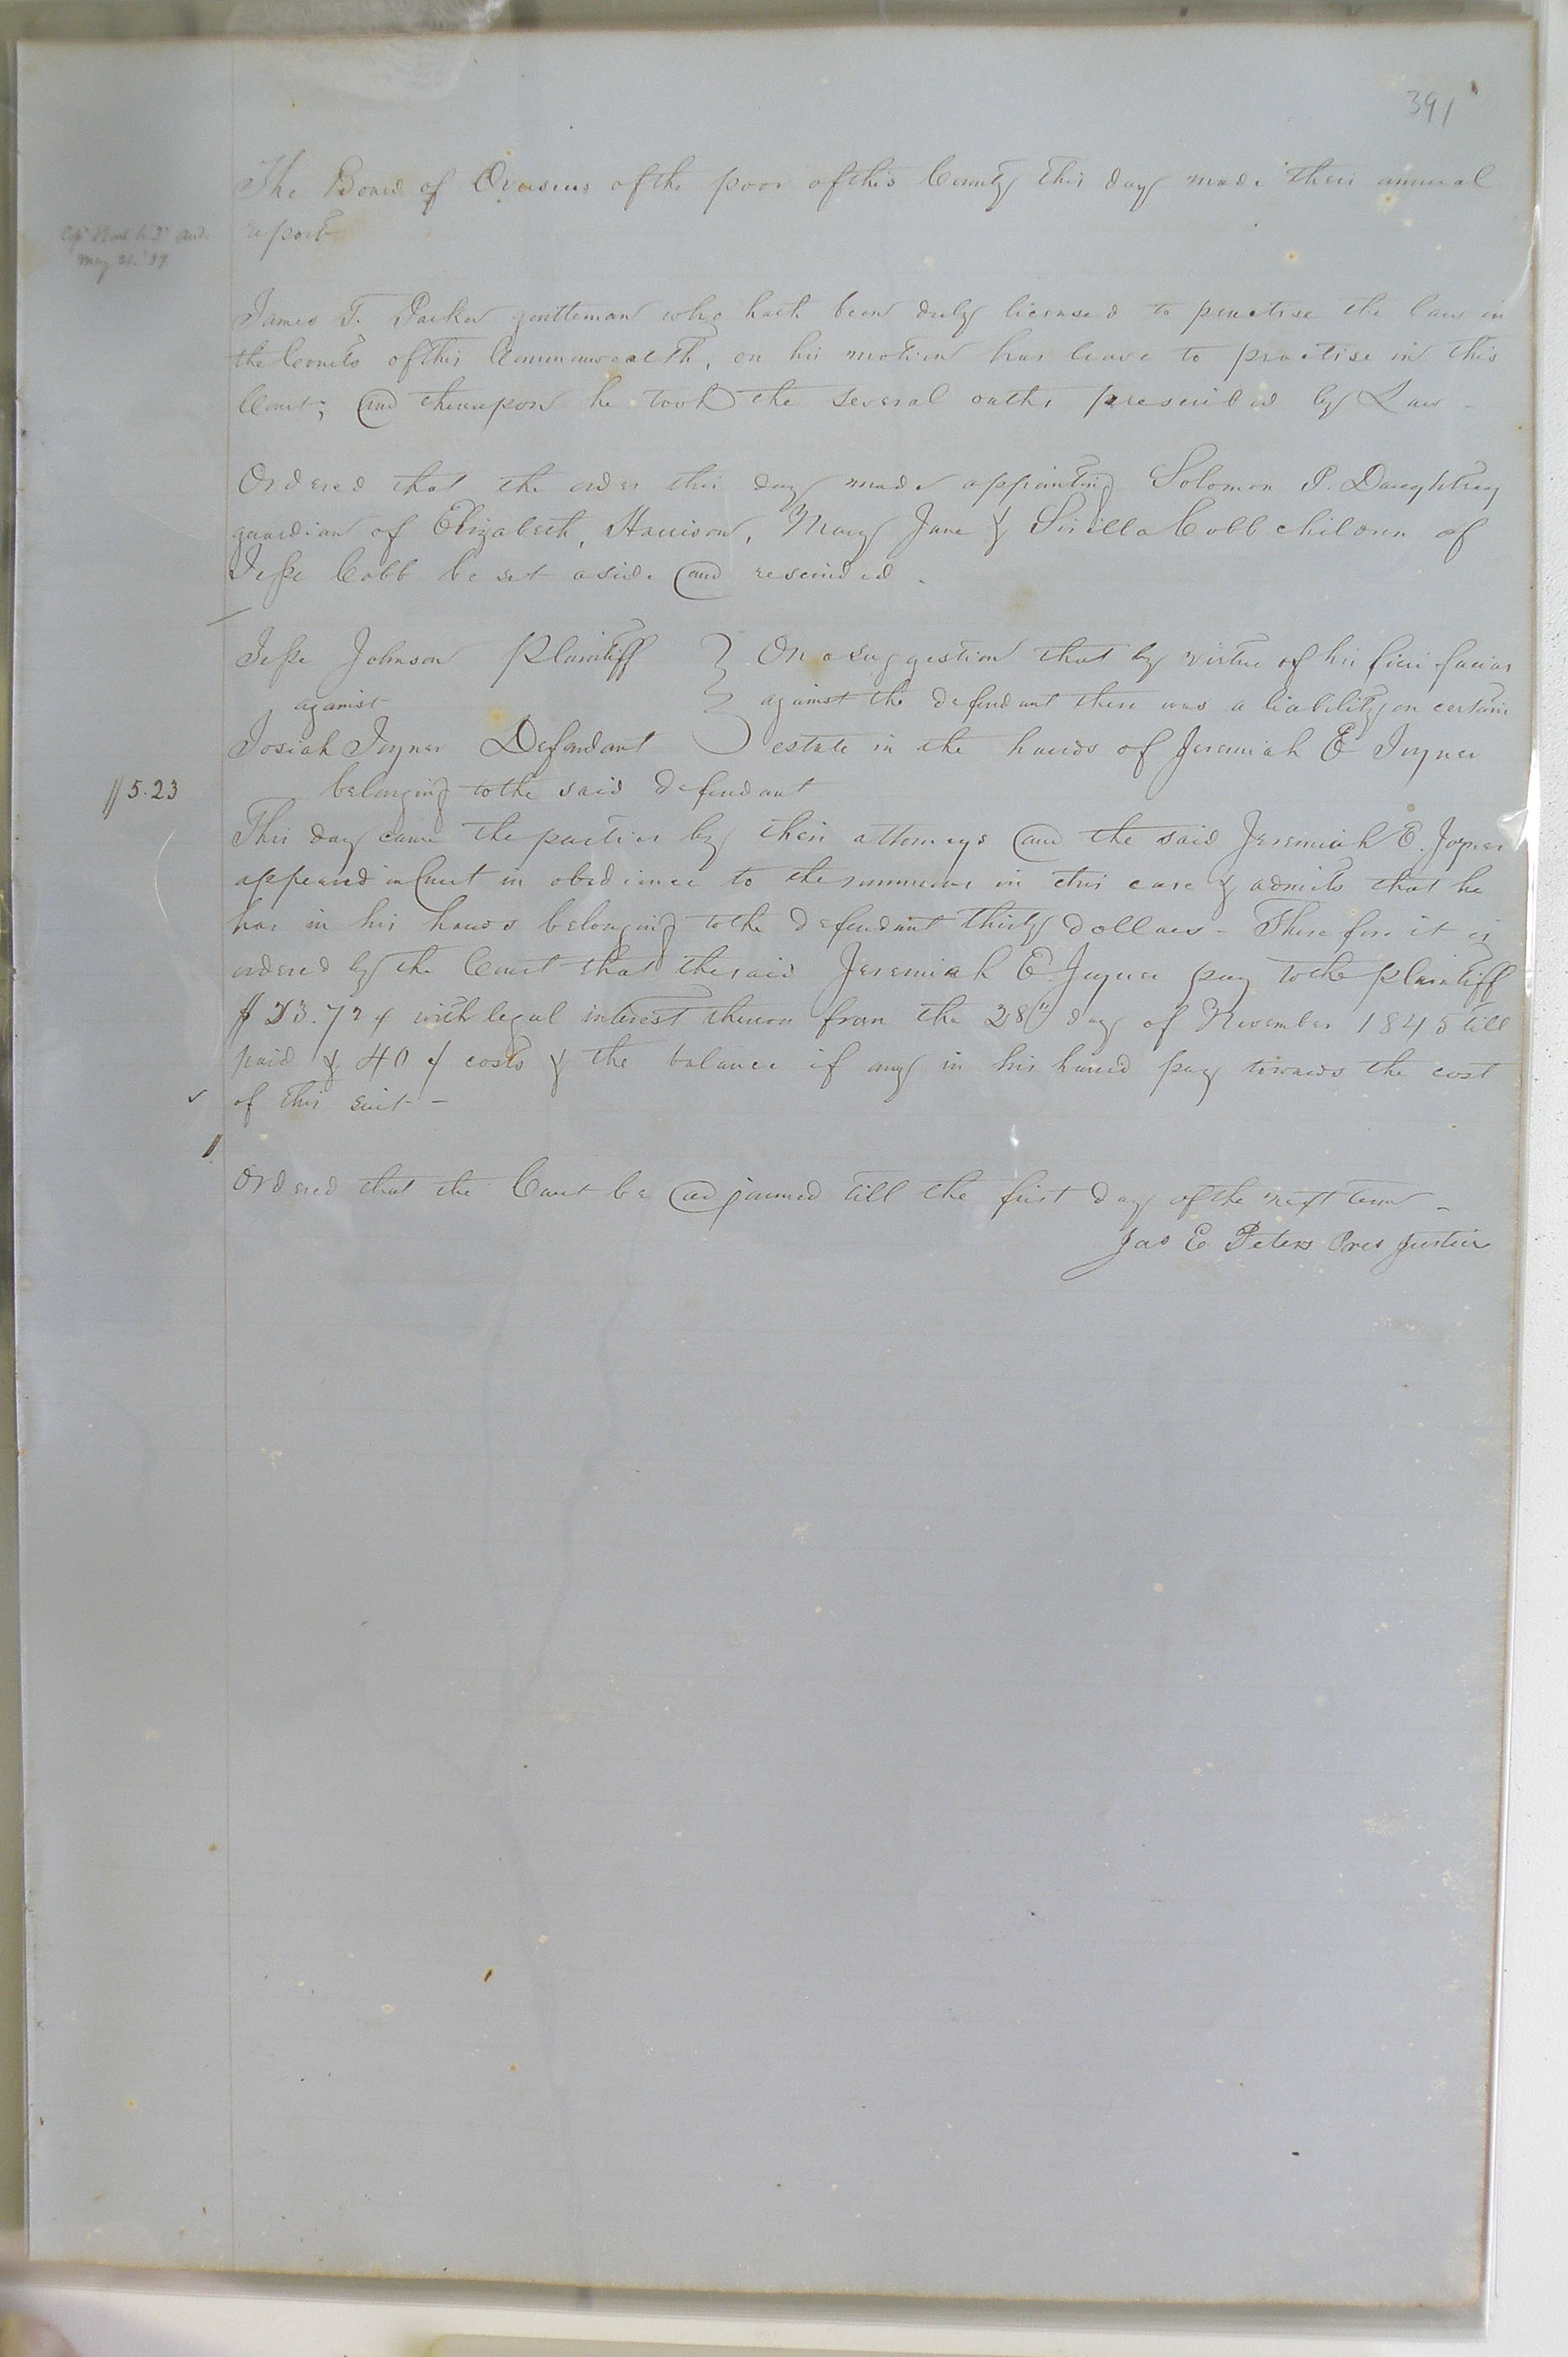 391
The Board of Overseers of the poor of this County this day made their annual
report
May 31. '39
James T. Parker gentleman who hath been duly licensed to practise the law in
the Courts of this Commonwealth, on his motion has leave to practise in this
Court; and thereupon he took the several oaths prescribed by Law -
Ordered that the order this day made appointing Solomon P. Daughtrey
guardian of Elizabeth, Harrison, Mary Jane & Sirilla Cobb children of
Jesse Cobb be set aside and rescinded.
Jesse Johnson Plaintiff
against
Josiah Joyner Defendant
On a suggestion that by virtue of his fieri facias
against the defendant there was a liability on certain
estate in the hands of Jeremiah E Joyner
$5.23
belonging to the said defendant
This day came the parties by their attorneys and the said Jeremiah E. Joyner
appeared in Court in obedience to the summons in this case & admits that he
has in his hands belonging to the defendant thirty dollars - Therefore it is
ordered by the Court that the said Jeremiah E. Joyner pay to the plaintiff
with legal interest thereon from the 28th day of November 1845 till
paid & 40 ¢ costs & the balance if any in his hands pay towards the cost
of this suit -
Ordered that the Court be adjourned till the first day of the next term -
Jas E Peters Pres Justice